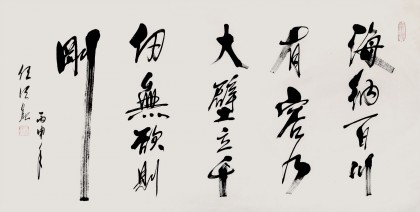 海納百川
有容乃
大壁立千
仞無欲則
剛
丙申年
任法融